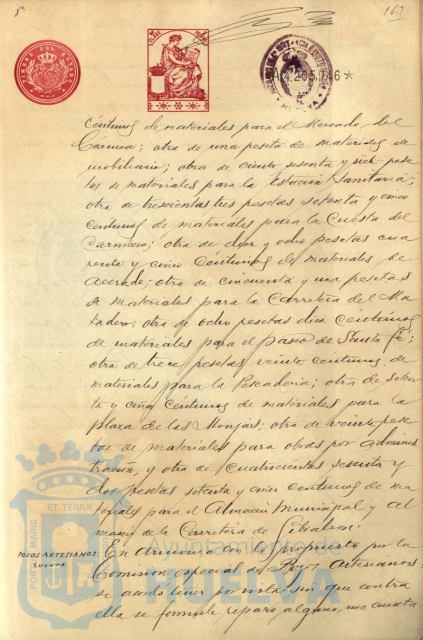 8
163
TIMBRE DEL ESTADO
A4.205.046*
céntimos de materiales para el Mercado del
Carmen; otra de una peseta de materiales de
mobiliario; otra de ciento sesenta y siete pese
tas de materiales para la Estación Sanitaria;
otra de trescientas tres pesetas setenta y cinco
centimos de materiales para la Cuesta del
Carnicero; otra de diez y ocho pesetas cua
renta y cinco centimos de materiales de
Acerado; otra de cincuenta y una pesetas
de materiales para la Carretera del Ma
tadero; otra de ocho pesetas diez céntimos
de materiales para el paseo de Santa Fé;
otra de trece pesetas veinte centimos de
materiales para la Pescaderia; otra de seten
ta y cinco céntimos de materiales para la
plaza de las Monjas; otra de veinte pese
tas de materiales para obras por adminis
tracion, y otra de cuatrocientas sesenta y
dos pesetas setenta y cinco centimos de ma
teriales para el Almacén Municipal y Al
macén de la Carretera de Gibraleon.
POZOS ARTESIANOS:
CUENTA
En armonia con lo propuesto por la
Comision especial de Pozos Artesianos
se acordó tener por vista sin que contra
ella se formule reparo alguno, una cuenta
PORTUS MARIS ET TERRA
Ayuntamiento de
HUELVA